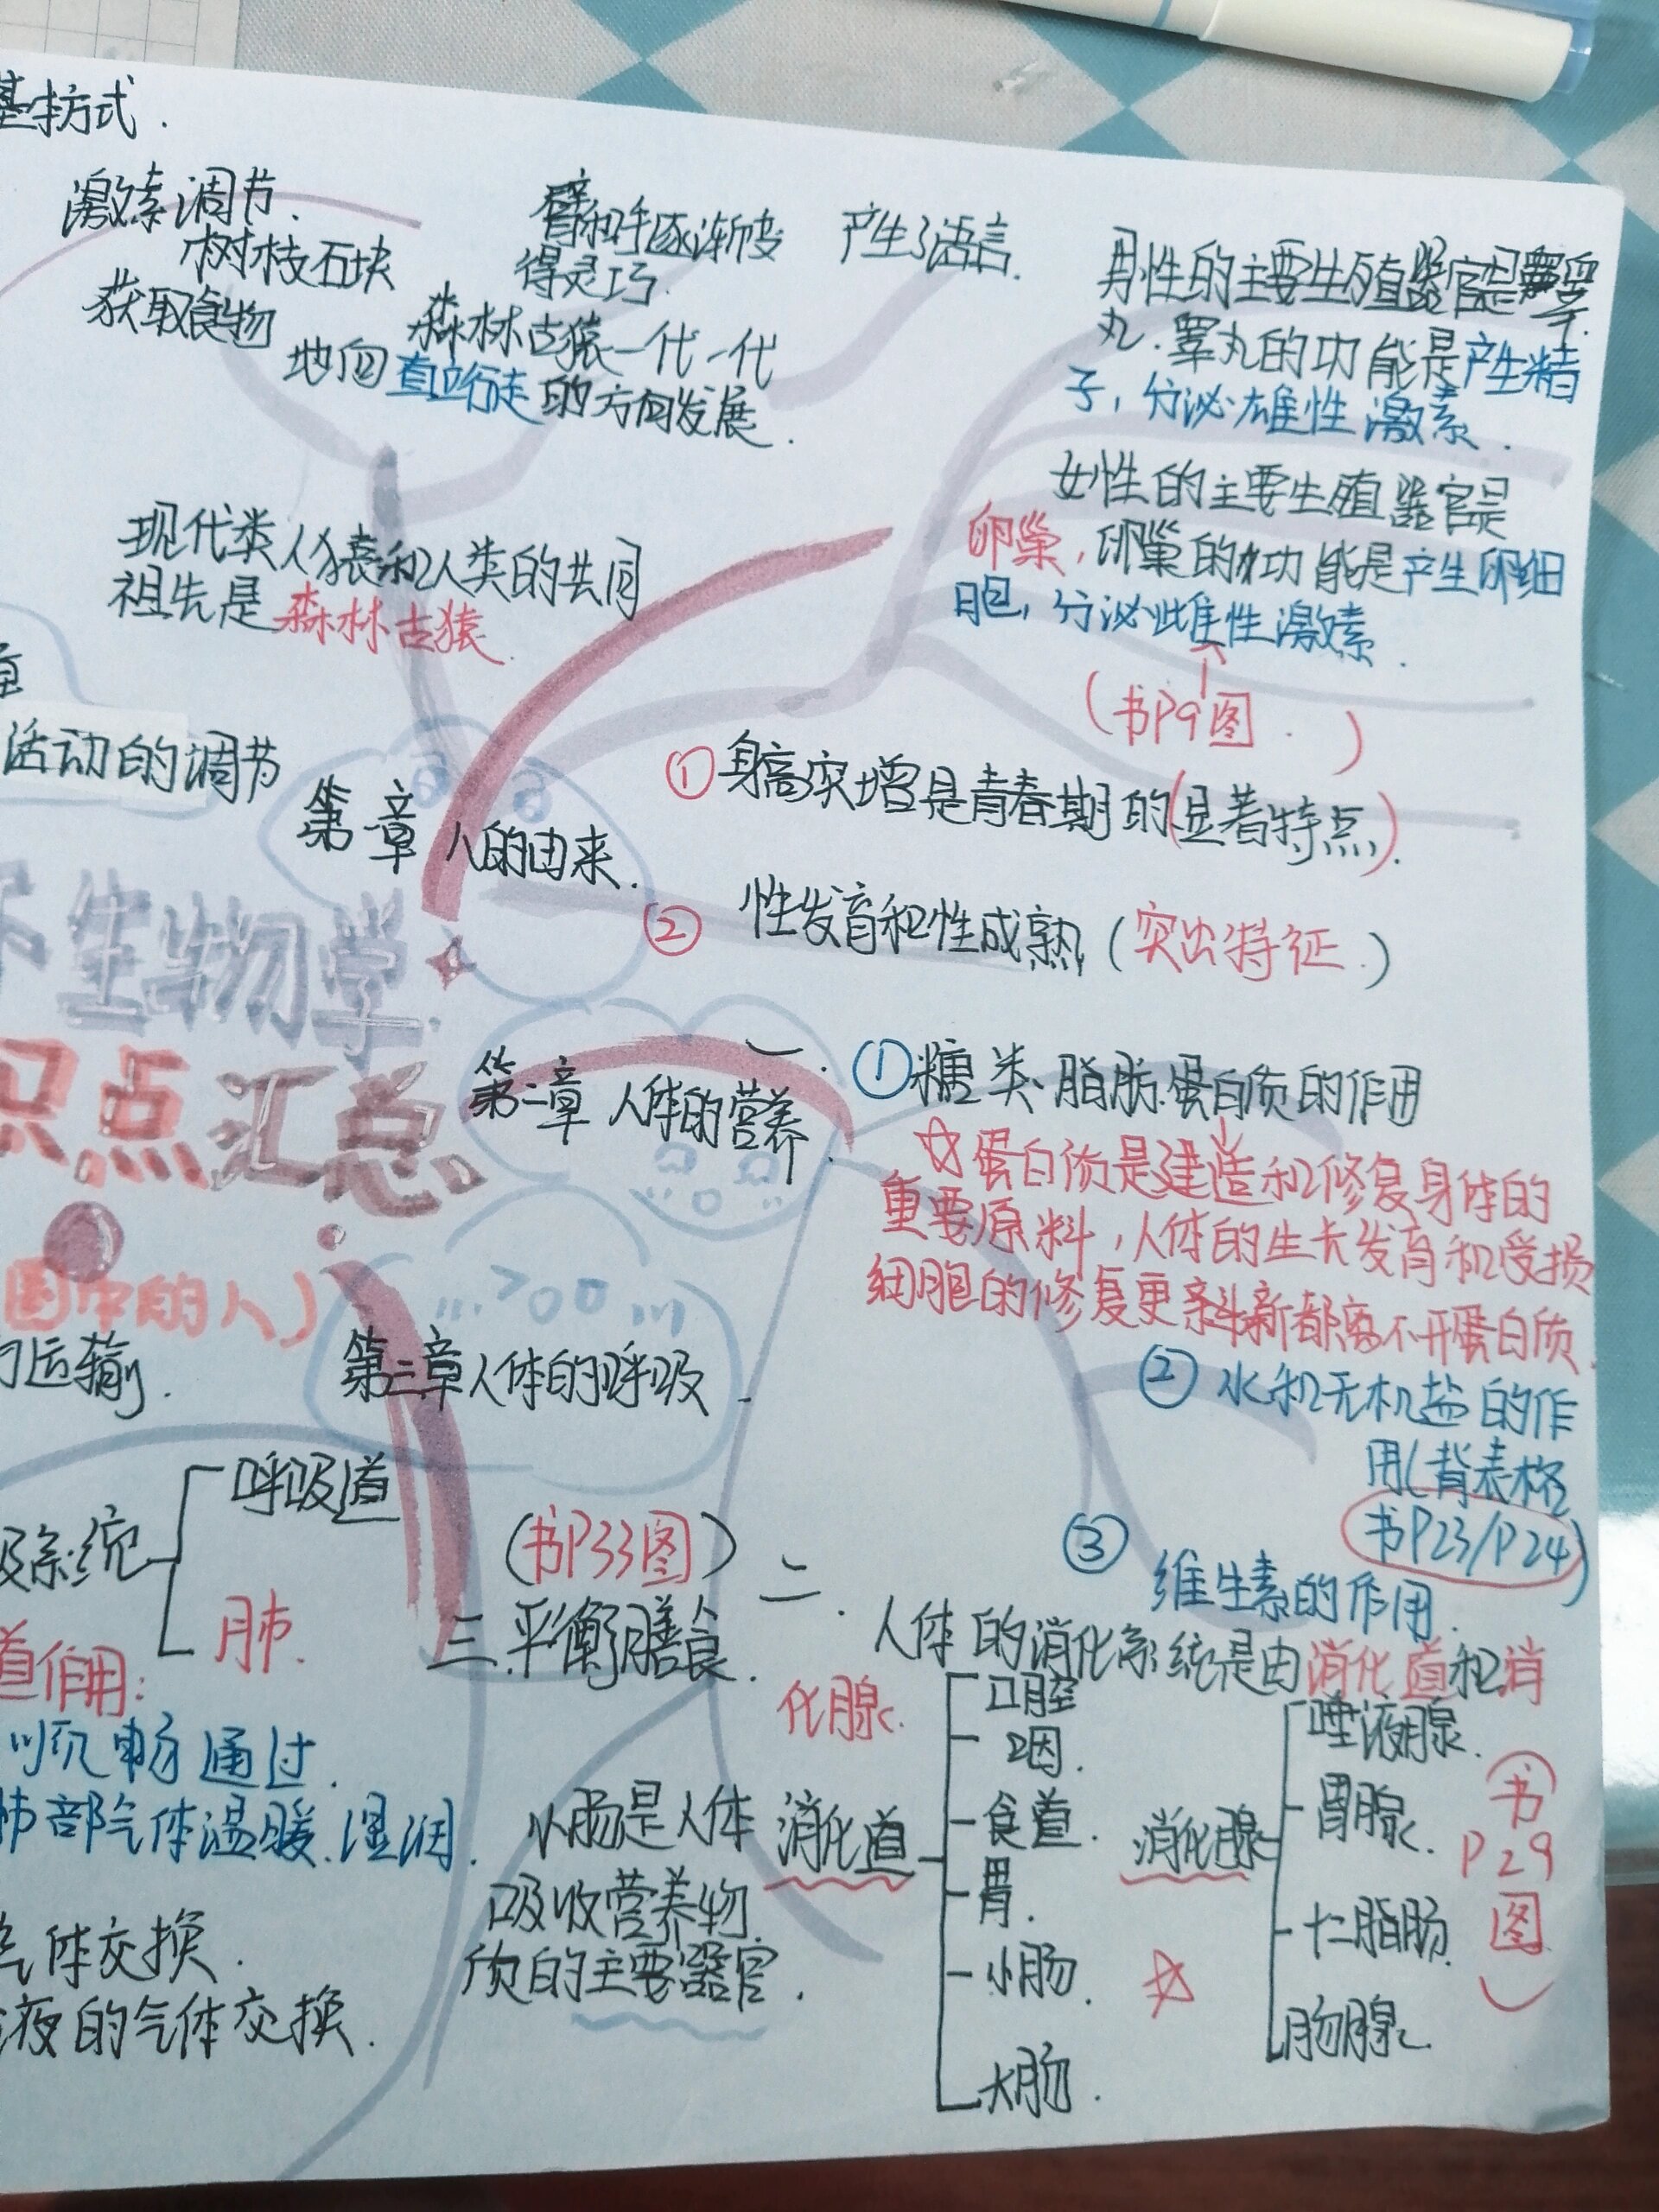 基本方式.
激素调节.
树枝石块
获取食物
臂和手逐渐变
得灵巧.
产生了语言.
森林古猿一代一代
地向直立行走的方向发展.
男性的主要生殖器官是睾
丸.睾丸的功能是产生精
子,分泌雄性激素.
女性的主要生殖器官是
卵巢,卵巢的功能是产生卵细
胞,分泌雌性激素.
(书P9图.)
现代类人猿和人类的共同
祖先是森林古猿.
章
活动的调节
第一章 人的由来.
①身高突增是青春期的(显著特点).
②性发育和性成熟(突出特征.)
生物学
识点汇总
图中的人)
第二章 人体的营养
一.①糖类、脂肪、蛋白质的作用
☆蛋白质是建造和修复身体的
重要原料,人体的生长发育和受损
细胞的修复更新都离不开蛋白质.
②水和无机盐的作
用(背表格
书P23/P24)
③维生素的作用.
运输.
第三章人体的呼吸.
吸系统
呼吸道
肺.
道作用:
顺畅通过.
肺部气体温暖.湿润.
气体交换.
液的气体交换.
(书P33图)
三.平衡膳食.
二.人体的消化系统是由消化道和消
化腺.
消化道
口腔
咽.
食道.
胃.
小肠.
大肠.
消化腺
唾液腺.
胃腺.
十二脂肠.
肠腺.
(书
P29
图)
小肠是人体
吸收营养物
质的主要器官.